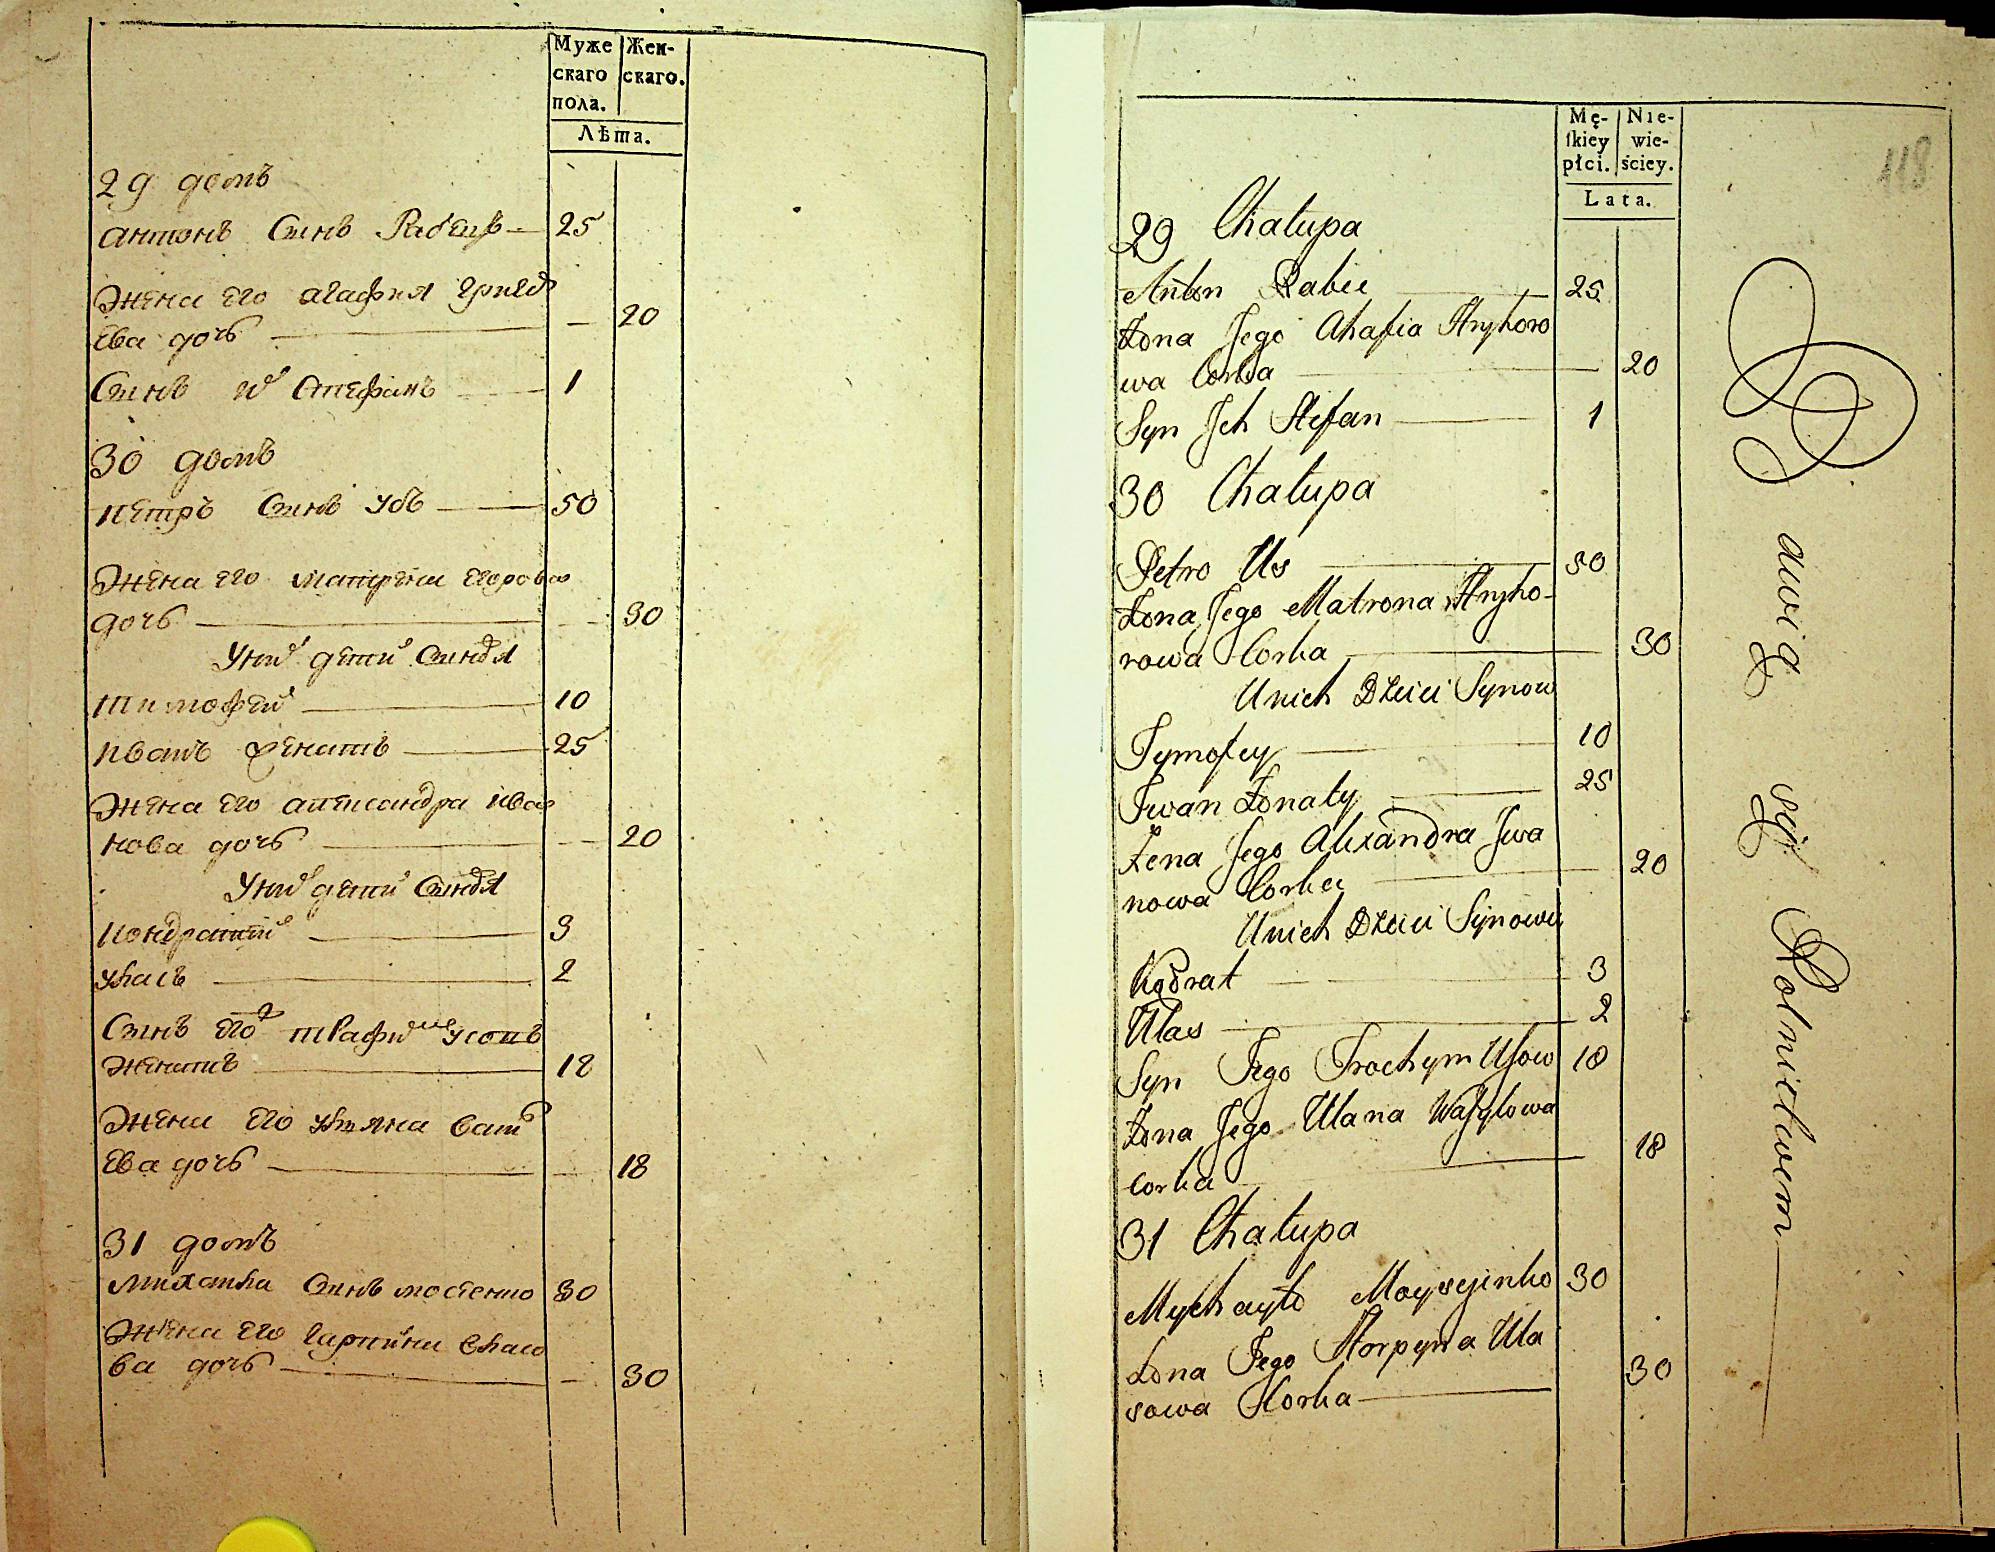 Муже
скаго
пола.
Жен-
скаго.
Лѣта.
29 домъ
антонъ Сынъ 25
Жена его агафия
ева дочь 20
Сынъ их Стефанъ 1
30 домъ
петръ Сынъ усъ 50
Жена его матрена егорова
дочь 30
Уних дети Синовя
тимофей 10
иванъ женатъ 25
Жена его александра ива
нова дочь 20
Уних дети Синовя
кондратий 3
уласъ 2
Синъ его трафим усовъ
женатъ 18
Жена его уляна васил
ева дочь 18
31 домъ
михайла Синъ мосеенко 30
Жена его гарпина власо
ва дочь 30
Mę-
ſkiey
płci.
Nie-
wie-
ściey.
Lata.
118
29 Chałupa
Anton Rabii 25
Żona Jego Ahafia Hryhoro
wa Corka 20
Syn Jch Stefan 1
30 Chałupa
Petro Us 50
Żona Jego Matrona Hryho-
rowa Corka 30
Unich Dzieci Synow
Tymofey 10
Jwan Żonaty 25
Żena Jego Alexandra Jwa
nowa Corka 20
Unich Dzieci Synowie
Kodrat 3
Ułas 2
Syn Jego Trochym Usow 18
Żona Jego Ulana Wasylowa
corka 18
31 Chałupa
Mychayło Moysyjenko 30
Żona Jego Horpyna Ula
sowa Corka 30
awią się Rolnictwem